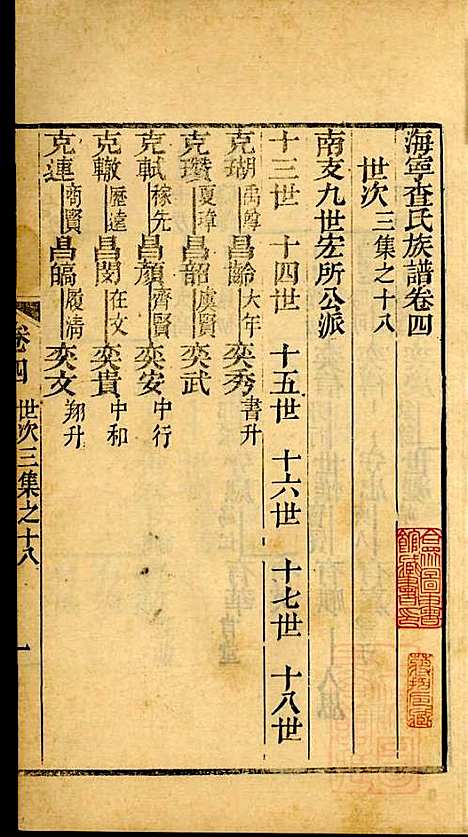 海寧查氏族譜卷四
世次三集之十八
南支九世宏所公派
十三世 十四世 十五世 十六世 十七世 十八世
克瑚禹尊 昌齡大年 奕秀書升
克瓚夏璋 昌韶虞賢 奕武
克軾稼先 昌顔齊賢 奕安中行
克轍歷達 昌閔在文 奕貴中和
克連商賢 昌皜履淸 奕文翔升
卷四 世次三集之十八 一